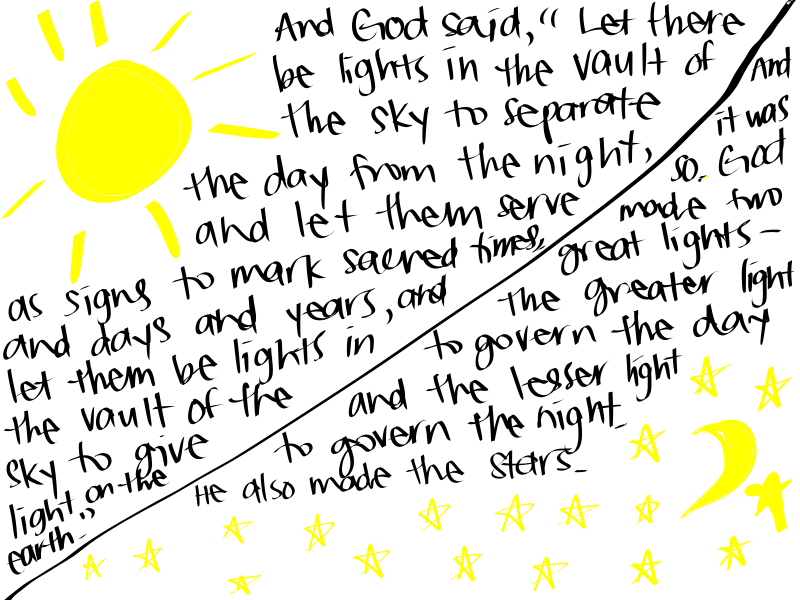 And God said, “Let there
be lights in the vault of
the sky to separate
the day from the night,
and let them serve
as signs to mark sacred times,
and days and years, and
let them be lights in
the vault of the
sky to give
light on the
earth.”
And
it was
so. God
made two
great lights -
the greater light
to govern the day
and the lesser light
to govern the night.
He also made the stars.